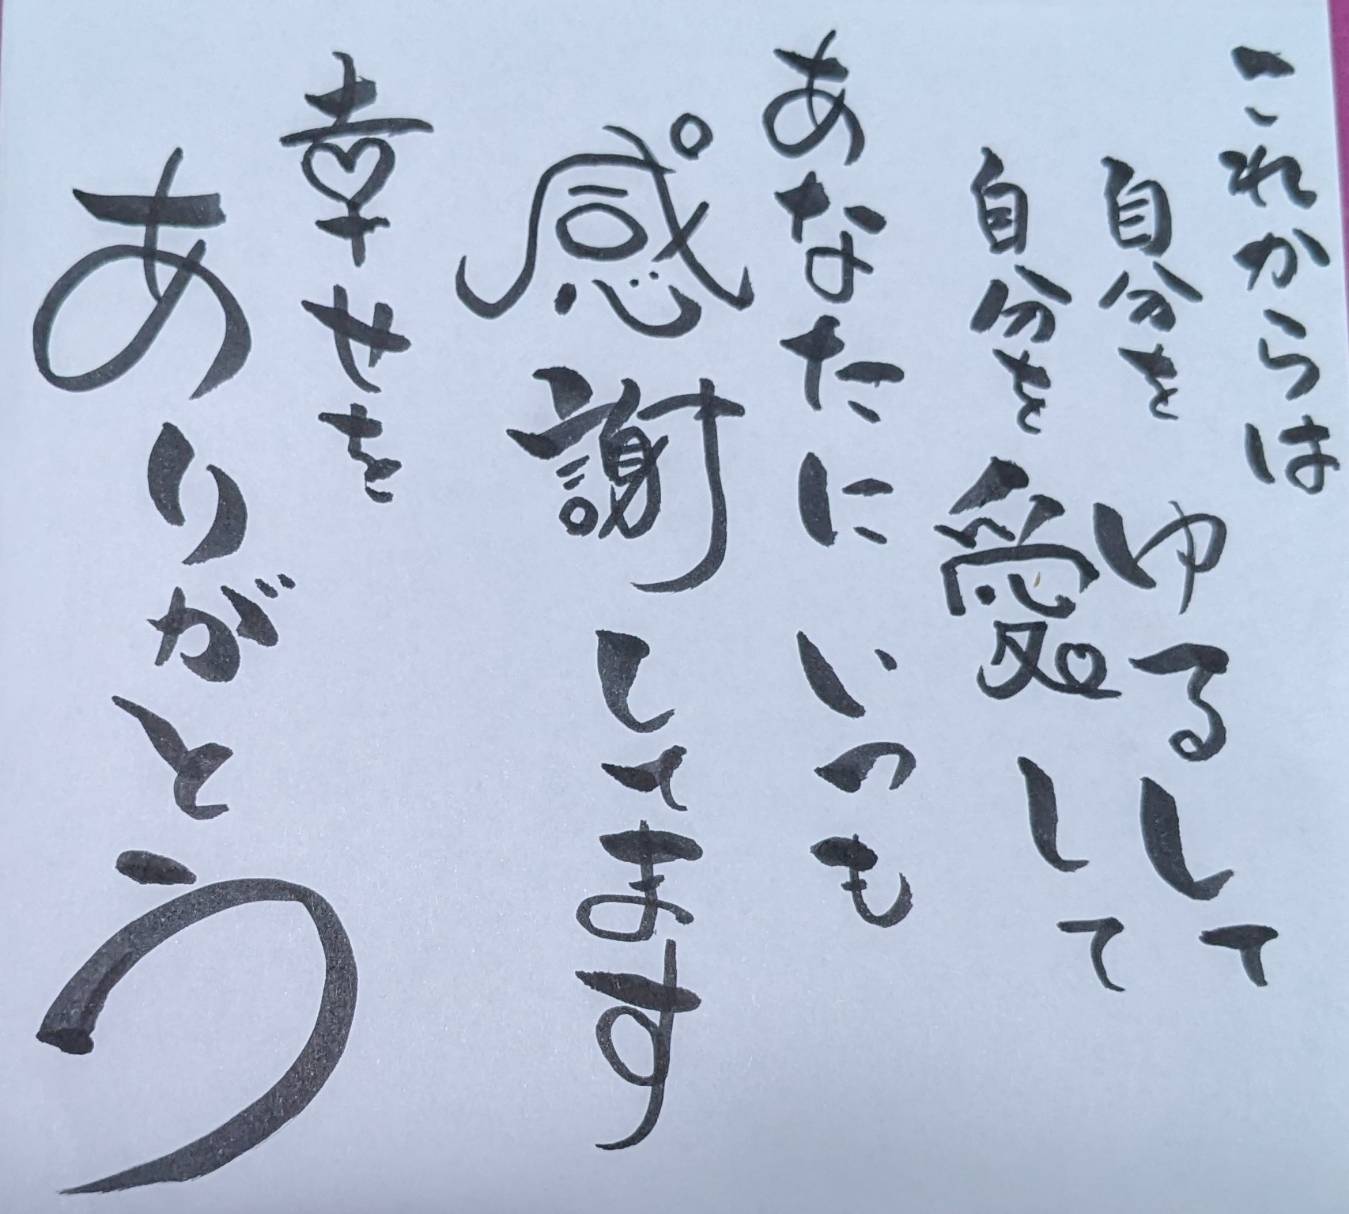 これからは
自分をゆるして
自分を愛して
あなたにいつも
感謝してます
幸せを
ありがとう